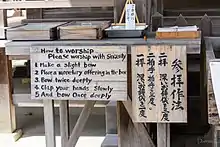 How to worship
Please worship with Sincerity
1. Make a slight bow
2. Place a monetary offering in the box
3. Bow twice deeply
4. Clap your hands Slowly
5. And bow Once deeply
参拝作法
二拝 深いお辞儀を二度
二拍手 拍手を二度
一拝 深いお辞儀を一度